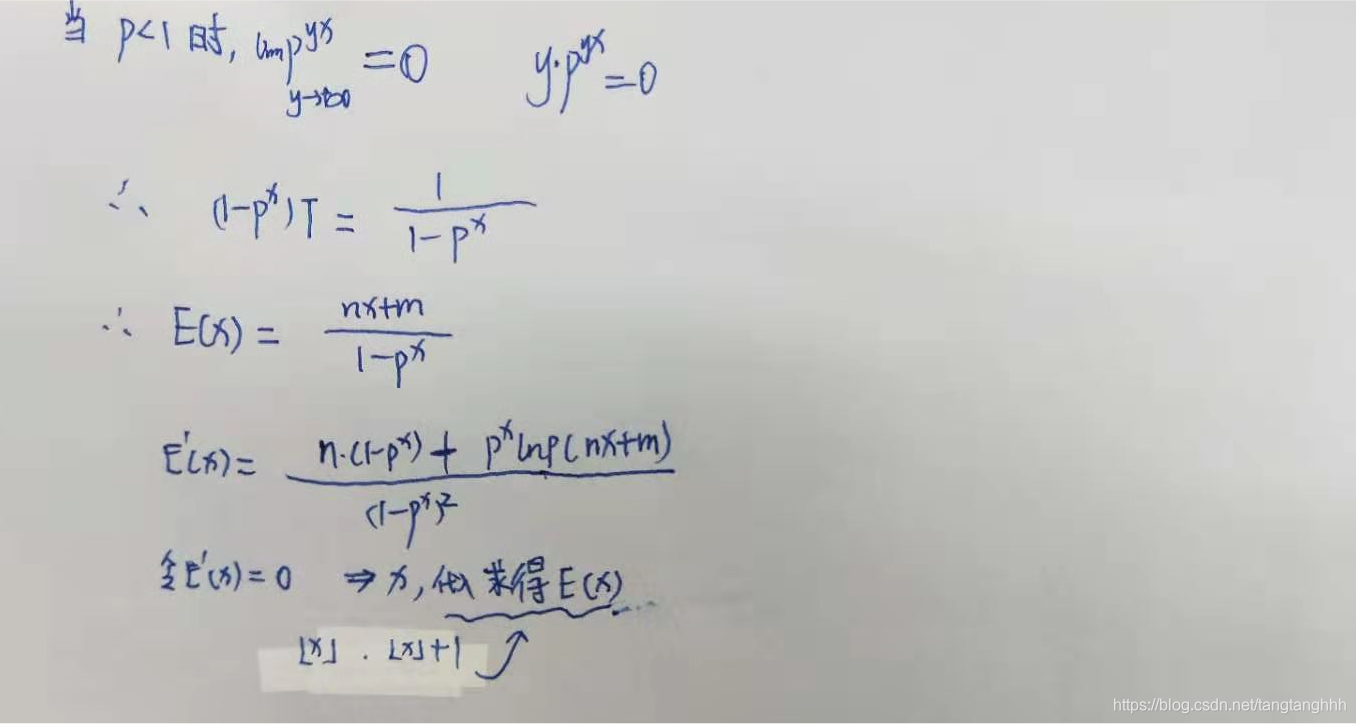 当 p<1 时, lim p^{yx} = 0    y·p^{yx} = 0
y→+∞
∴ (1-p^x)T = \frac{1}{1-p^x}
∴ E(x) = \frac{nx+m}{1-p^x}
E'(x) = \frac{n·(1-p^x) + p^x lnp(nx+m)}{(1-p^x)^2}
令E'(x) = 0 ⇒ x, 代入 求得 E(x)
⌊x⌋ . ⌊x⌋+1
https://blog.csdn.net/tangtanghhh